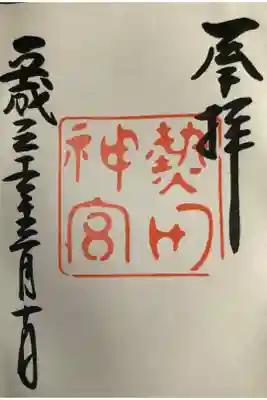 奉拝
熱田
神宮
平成三十年三月十日